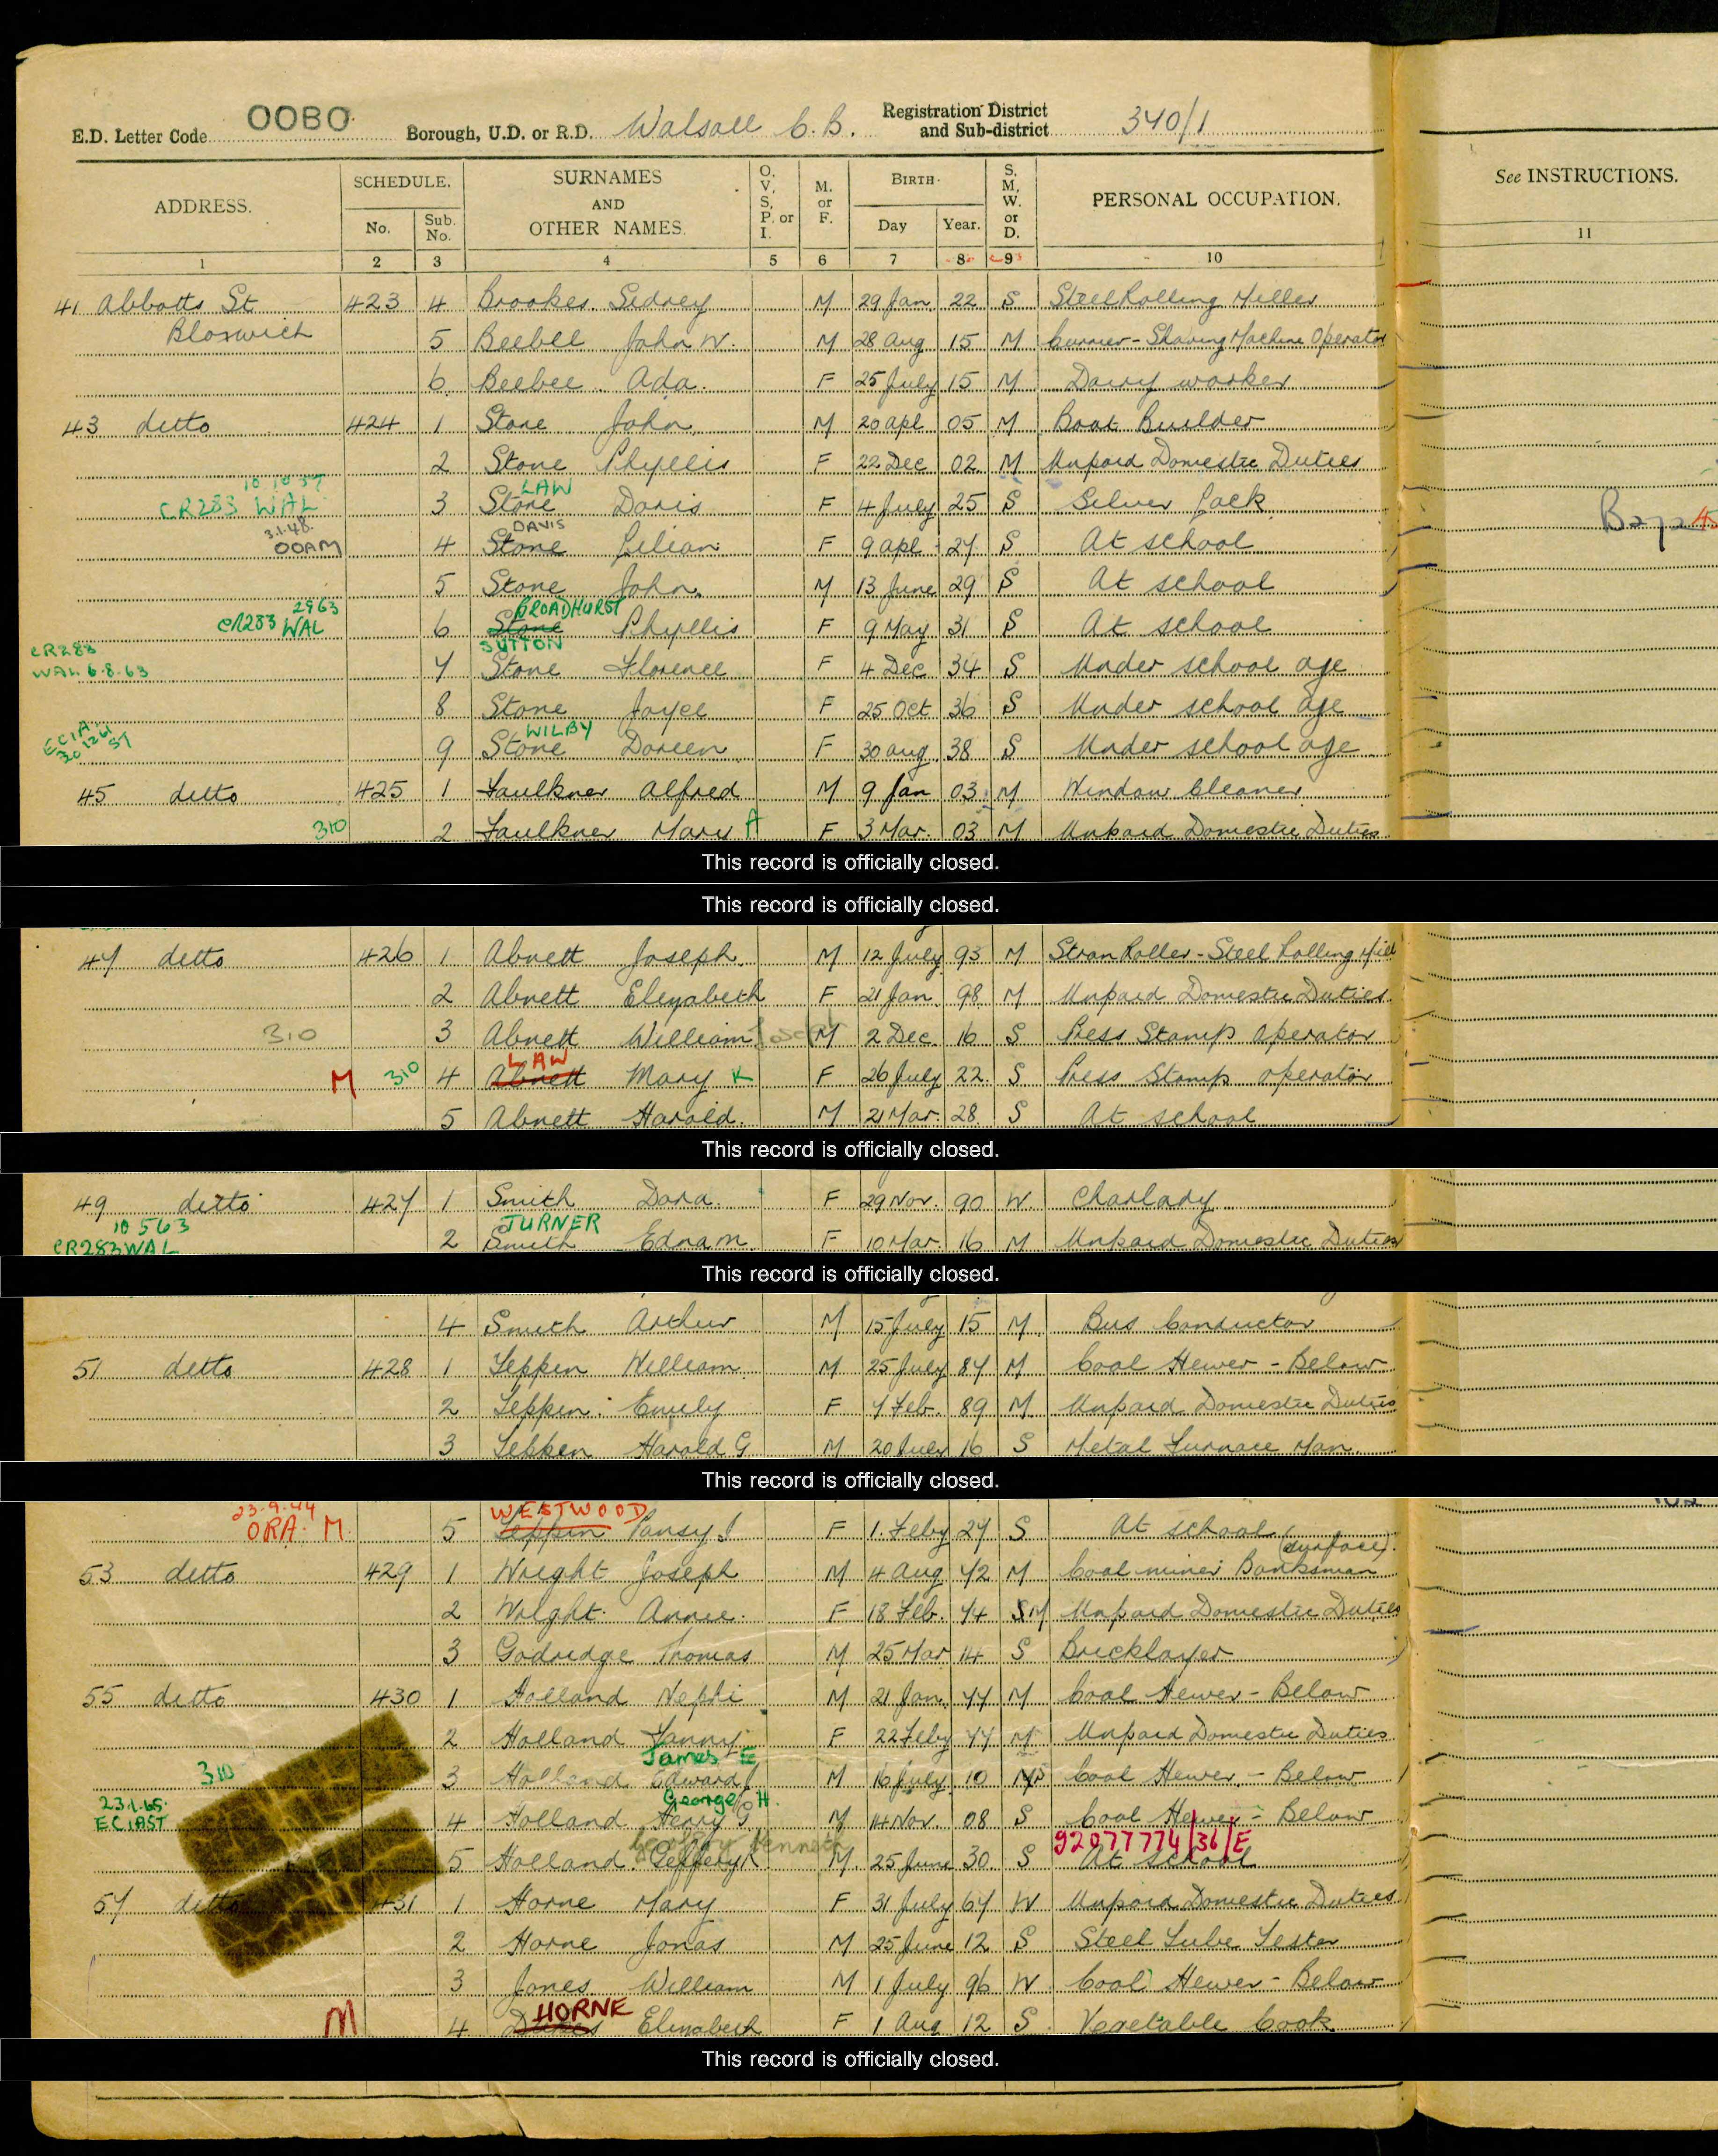 E.D. Letter Code OOBO Borough, U.D. or R.D. Walsall C.B. Registration District and Sub-district 340/1
ADDRESS. SCHEDULE. No. Sub. No. SURNAMES AND OTHER NAMES. O, V, S, P. or I. M. or F. BIRTH. Day Year. S, M, W. or D. PERSONAL OCCUPATION. See INSTRUCTIONS.
1 2 3 4 5 6 7 8 9 10 11
41 Abbotts St 423 4 Brookes Sidney M 29 Jan 22 S Steel Rolling Miller
Bloxwich 5 Beebee John W. M 28 Aug 15 M Currier - Shaving Machine Operator
6 Beebee Ada. F 25 July 15 M Dairy worker
43 ditto 424 1 Stone John M 20 Apl 05 M Boat Builder
2 Stone Phyllis F 22 Dec 02 M Unpaid Domestic Duties
CR283 WAL 3 Stone LAW Doris F 4 July 25 S Silver
3.1.48 OOAM 4 Stone DAVIS Lilian F 9 Apl 27 S At school
5 Stone John M 13 June 29 S At school
CR283 2963 WAL 6 Stone BROADHURST Phyllis F 9 May 31 S At school
CR283 WAL 6.8.63 7 Stone SUTTON Florence F 4 Dec 34 S Under school age
8 Stone Joyce F 25 Oct 36 S Under school age
9 Stone WILBY Doreen F 30 Aug 38 S Under school age
45 ditto 425 1 Faulkner Alfred M 9 Jan 03 M Window Cleaner
310 2 Faulkner Mary A F 3 Mar. 03 M Unpaid Domestic Duties
This record is officially closed.
This record is officially closed.
47 ditto 426 1 Abnett Joseph. M 12 July 93 M Roller - Steel Rolling Mill
2 Abnett Elizabeth F 21 Jan. 98 M Unpaid Domestic Duties
310 3 Abnett William M 2 Dec. 16 S Press Stamp operator
M 310 4 Abnett LAW Mary K F 26 July 22 S Press Stamp operator
5 Abnett Harold. M 21 Mar. 28 S At school
This record is officially closed.
49 ditto 427 1 Smith Dora. F 29 Nov. 90 W. Charlady
10 5 63 CR283 WAL 2 Smith TURNER Edna M. F 10 Mar. 16 M Unpaid Domestic Duties
This record is officially closed.
4 Smith Arthur M 15 July 15 M. Bus Conductor
51 ditto 428 1 Teppin William M 25 July 87 M Coal Hewer - Below
2 Teppin Emily F 7 Feb. 89 M. Unpaid Domestic Duties
3 Teppin Harold G M 20 July 16 S Metal Furnace Man
This record is officially closed.
23.9.44 ORA M. 5 Teppin WESTWOOD Pansy I F 1 Feby 27 S At school
53 ditto 429 1 Wright Joseph M 4 Aug 72 M Coal miner Banksman (surface)
2 Wright Annie F 18 Feb. 74 S M Unpaid Domestic Duties
3 Godridge Thomas M 25 Mar 14 S Bricklayer
55 ditto 430 1 Holland Nephi M 21 Jan. 77 M Coal Hewer - Below
2 Holland Fanny F 22 Feby 77 M Unpaid Domestic Duties
310 3 Holland Edward J James E M 16 July 10 M S Coal Hewer - Below
23.1.65 EC1AST 4 Holland Henry G. George H. M 14 Nov. 08 S Coal Hewer - Below
5 Holland Geffery K Kenneth M. 25 June 30 S At school 92077774/36/E
57 ditto 431 1 Horne Mary F 31 July 67 W Unpaid Domestic Duties
2 Horne Jonas M 25 June 12 S Steel Tube Tester
3 Jones William M 1 July 96 W Coal Hewer - Below
M 4 HORNE Elizabeth F 1 Aug 12 S Vegetable Cook
This record is officially closed.